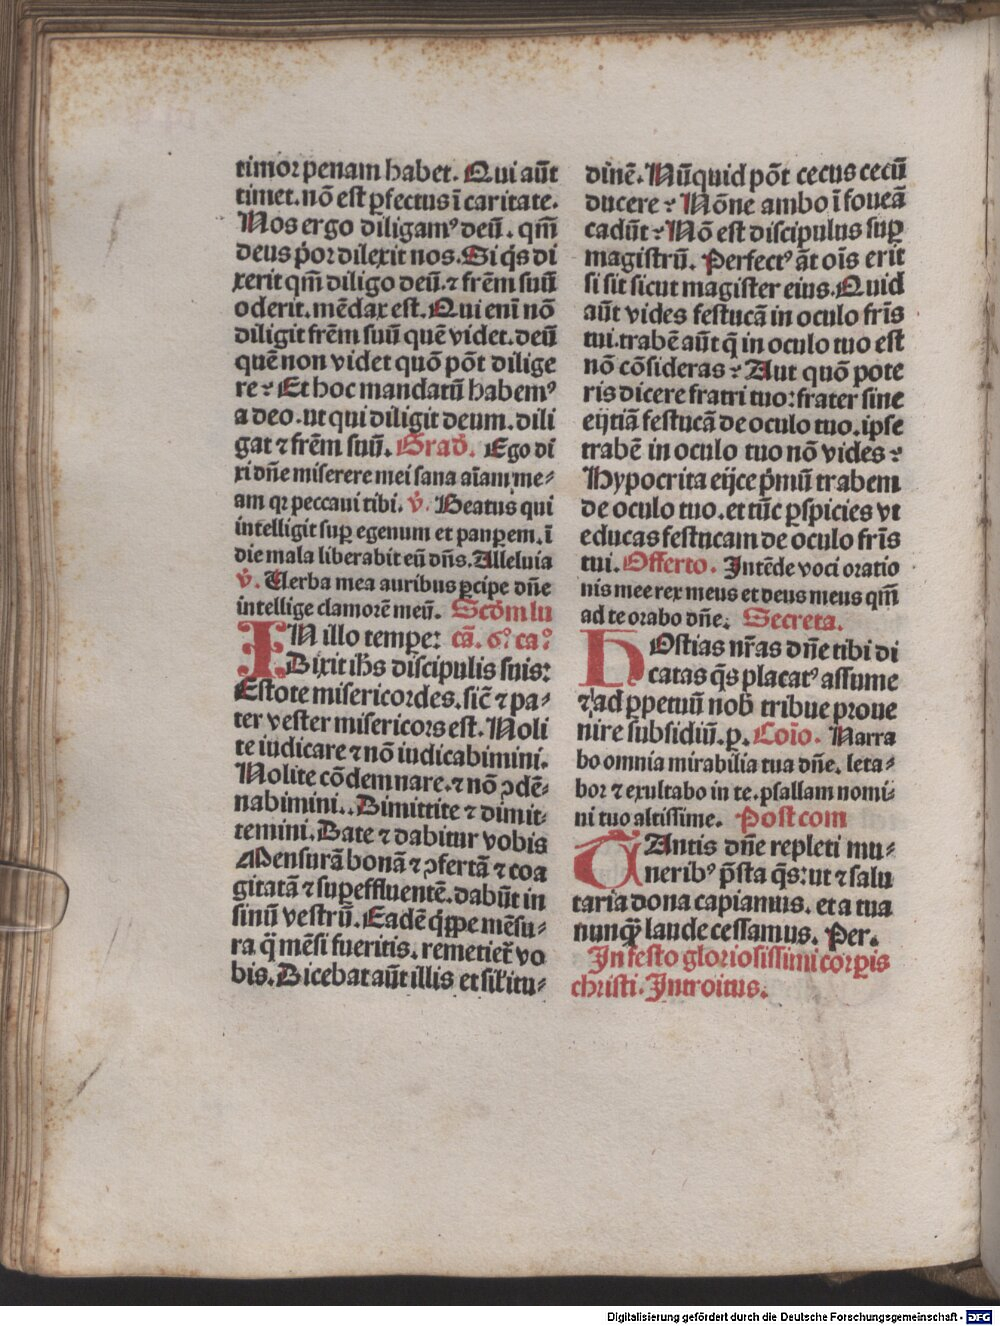 timor penam habet. Qui aūt
timet. nō est ꝑfectus ī caritate.
Nos ergo diligamꝰ deū. qm̄
deus p̄or dilexit nos. Si q̄s di
xerit qm̄ diligo deū. ⁊ frēm suū
oderit. mēdax est. Qui enī nō
diligit frēm suū quē videt. deū
quē non videt quō pōt dilige
re? Et hoc mandatū habemꝰ
a deo. ut qui diligit deum. dili
gat ⁊ frēm suū. Grad̄. Ego di
xi dn̄e miserere mei sana aīam me⸗
am qꝛ peccaui tibi. v̄. Beatus qui
intelligit suꝑ egenum et pauꝑem. ī
die mala liberabit eū dn̄s. Alleluia
v̄. Uerba mea auribus ꝑcipe dn̄e
intellige clamorē meū. Scd̄m lu
IN illo tempe: cā. 6ꝰ caꝰ
Dixit ih̄s discipulis suis:
Estote misericordes. sic̄ ⁊ pa⸗
ter vester misericors est. Noli
te iudicare ⁊ nō iudicabimini.
Nolite cōdemnare. ⁊ nō ꝯdē⸗
nabimini.. Dimittite ⁊ dimit⸗
temini. Date ⁊ dabitur vobis
Mensurā bonā ⁊ ꝯfertā ⁊ coa
gitatā ⁊ suꝑeffluentē. dabūt in
sinū vestrū. Eadē q̄ꝑpe mēsu⸗
ra q̄ mēsi fueritis. remetiet̄ vo
bis. Dicebat aūt illis et sil̄itu⸗
dinē. Nūquid pōt cecus cecū
ducere? Nōne ambo ī foueā
cadūt? Nō est discipulus suꝑ
magistrū. Perfectꝰ āt oīs erit
si sit sicut magister eius. Quid
aūt vides festucā in oculo frīs
tui. trabē aūt q̄ in oculo tuo est
nō cōsideras? Aut quō pote
ris dicere fratri tuo: frater sine
eijciā festucā de oculo tuo. ipse
trabē in oculo tuo nō vides?
Hypocrita eijce p̄mū trabem
de oculo tuo. et tūc ꝑspicies vt
educas festucam de oculo frīs
tui. Offerto. Intēde voci oratio
nis mee rex meus et deus meus qm̄
ad te orabo dn̄e. Secreta.
HOstias nr̄as dn̄e tibi di
catas q̄s placatꝰ assume
⁊ ad ꝑpetuū nob̄ tribue proue
nire subsidiū. ꝑ. Coīo. Narra
bo omnia mirabilia tua dn̄e. leta⸗
bor ⁊ exultabo in te. psallam nomi⸗
ni tuo altissime. Postcom
TAntis dn̄e repleti mu⸗
neribꝰ p̄sta q̄s: ut ⁊ salu
taria dona capiamus. et a tua
nunqꝫ laude cessamus. Per.
In festo gloriosissimi corꝑis
christi. Introitus.
Digitalisierung gefördert durch die Deutsche Forschungsgemeinschaft - DFG